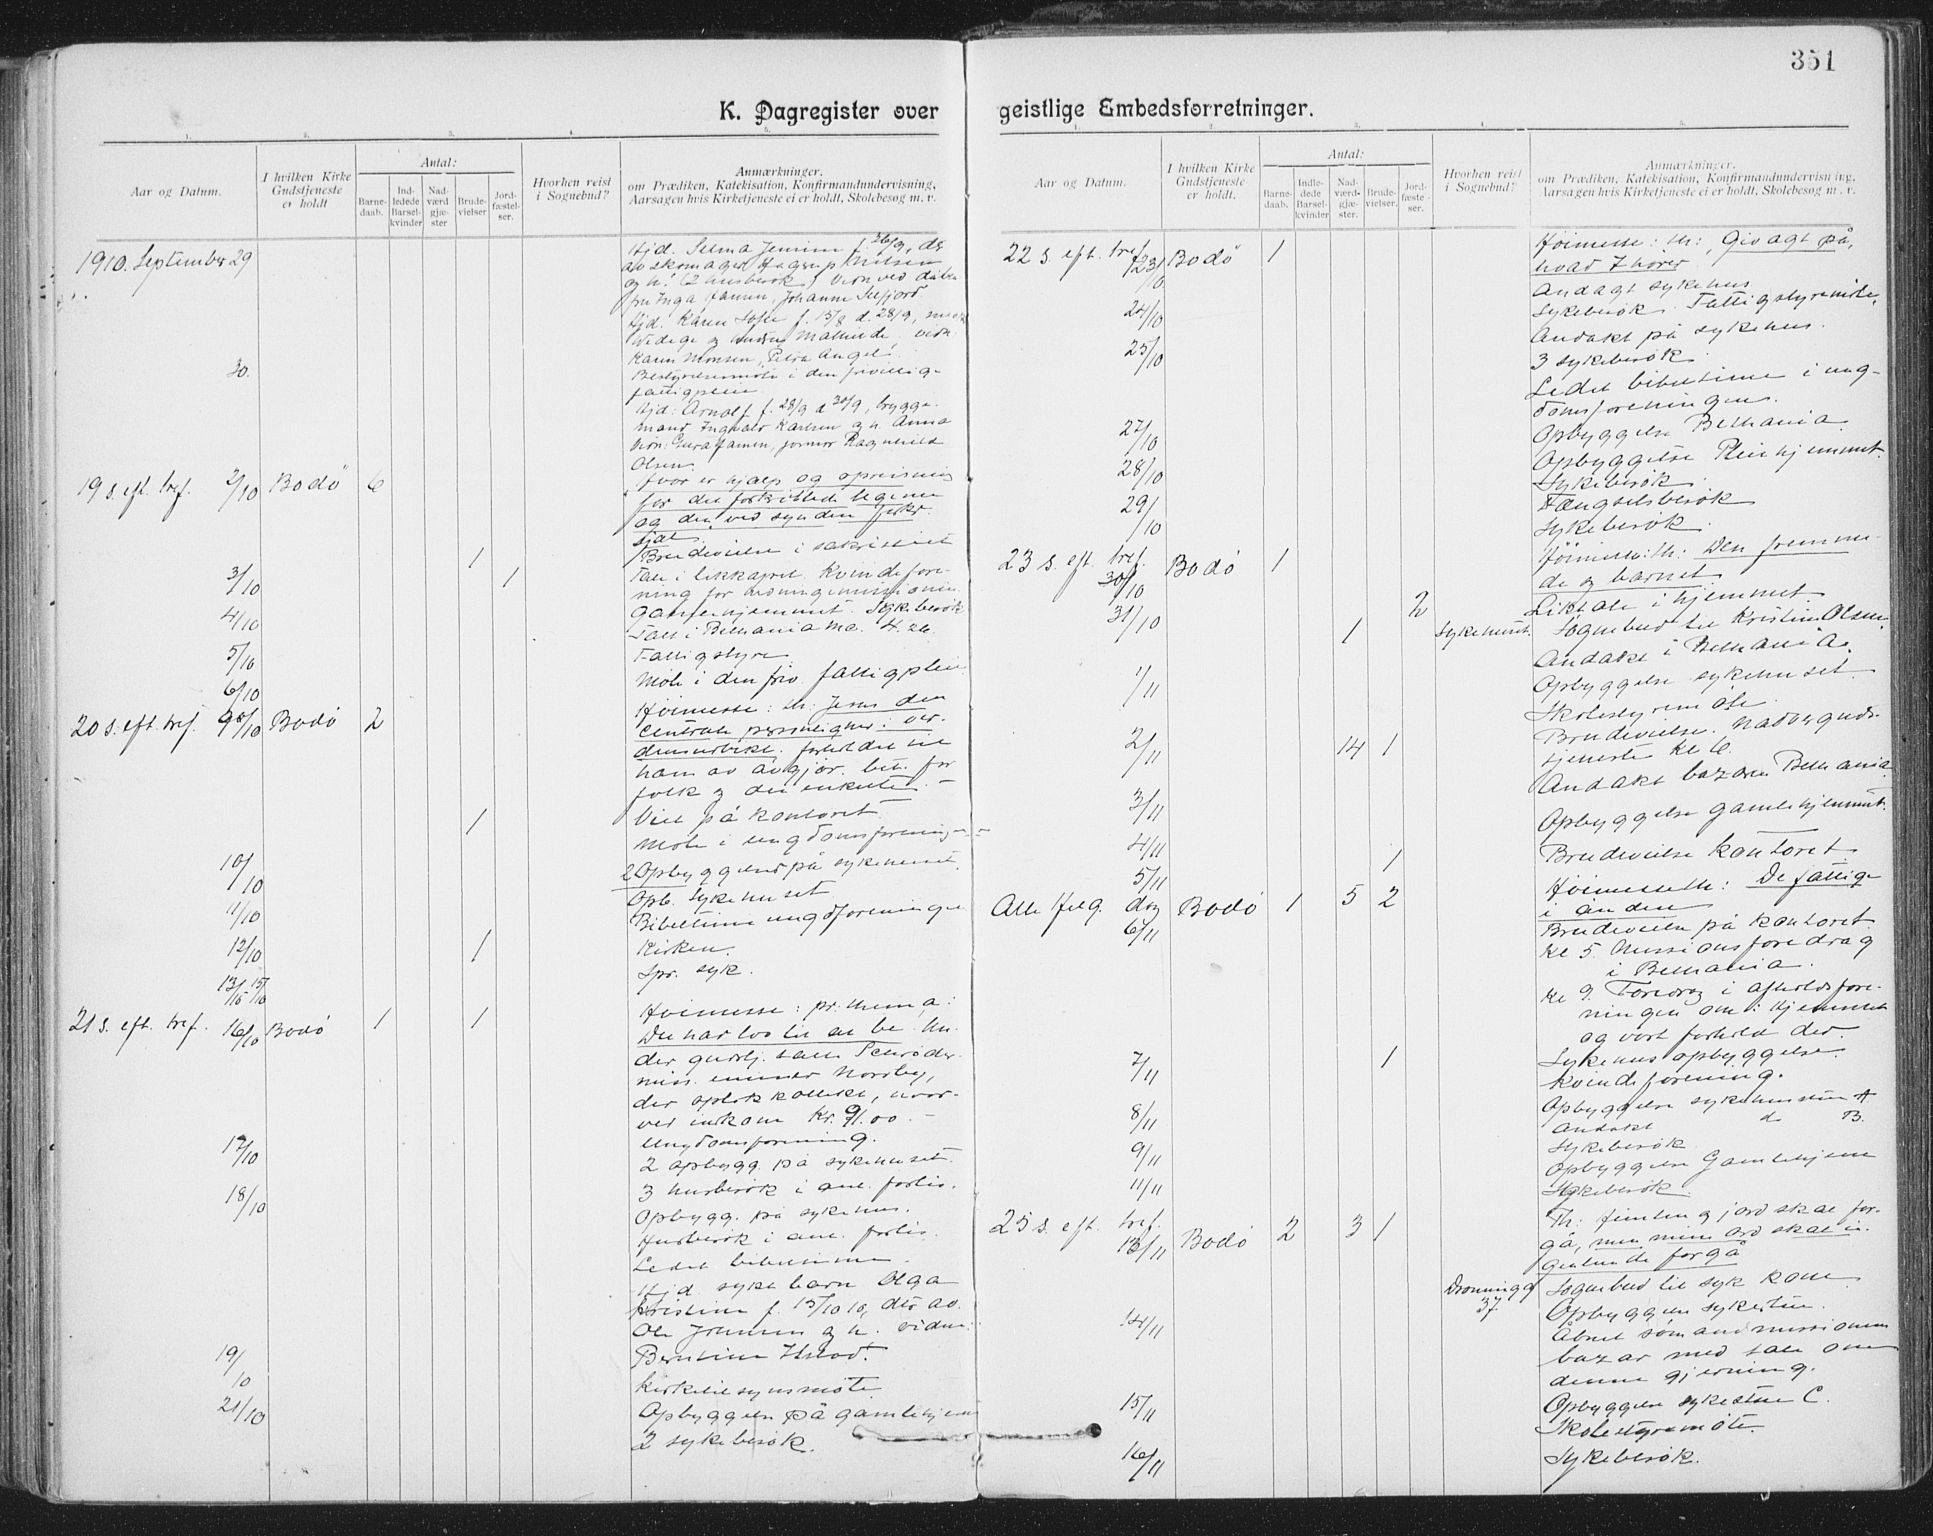 351
K. Dagregister over geistlige Embedsforretninger.
1. 2. 3. 4. 5.
Aar og Datum.
I hvilken Kirke Gudstjeneste er holdt
Antal:
Barne-daab.
Ind-ledede Barsel-kvinder
Nad-værd gjæ-ster
Brude-vielser
Jord-fæstel-ser.
Hvorhen reist i Sognebud?
Anmærkninger.
om Prædiken, Katekisation, Konfirmandundervisning,
Aarsagen hvis Kirketjeneste ei er holdt, Skolebesøg m. v.
1910. September 29
Hjd. Selma f. 26/9, dr
av skomager Hagerup Nielsen
og h. (2 husbesøk) Vidn ved dåben
fru Inga Johanne
Hjd. Karen Sofie f. 15/8 d. 28/9,
og vidn:
Karen Monsen, Petra Angel.
30.
Bestyrelsesmöte i den frivillige
fattigpleie
Hjd: Arnolf f. 28/9 d 30/9, brygge-
mand Ingvald Karlsen og h. Anna
Vidn: jormor Ragnhild
Olsen
19 s. eft. tref. 2/10 Bodö 6
Hvor er hjælp og opreisning
for det legeme
og den ved synden
sjæl.
1 Brudevielse i sakristiet
3/10 1 Tale i likkapel. Kvindefore-
ning for
4/10 Gamlehjemmet. Sykebesök
Tale i Bethania
5/10 Fattigstyre
6/10 Möte i den friv. fattigpleie
20 s. eft. tref. 9/10 Bodö 2
Höimesse: th: Jesus den
centrale personlighet i ver-
forholdet til
ham av avgjör. bet. for
folk og den enkelte. -
1 Viel på kontoret
Möte i ungdomsforeningen
10/10 2 Opbyggelser på sykehuset
11/10 Opb. sykehuset
Bibeltime ungdforeningen
12/10 1 Kirken.
13/10 15/10 Spr. syk.
21 s. eft. tref. 16/10 Bodö 1 1
Höimesse: pr. thema:
Du har lov til at be. Un-
der gudstj. talte Schröder
miss. Norsby,
der optok kollekt, hvor-
ved indkom Kr. 91.00. -
Ungdomsforening.
17/10 2 opbygg. på sykehuset.
3 husbesök i anl. forlis.
18/10 Opbygg. på sykehus.
Husbesök i anl. forlis.
Ledet bibeltime
Hjd. sykt barn Olga
Kristine f. 15/10 10, dtr av
Ole Johnsen og h. vidne:
Berntine
19/10 Kirketilsynsmöte
21/10 Opbyggelse på gamlehjem
2 sykebesök.
1. 2. 3. 4. 5.
Aar og Datum.
I hvilken Kirke Gudstjeneste er holdt.
Antal:
Barne-daab.
Indle-dede Barsel-kvinder
Nad-værd-gjæ-ster.
Brude-vielser.
Jord-fæste-ser.
Hvorhen reist i Sognebud?
Anmærkninger.
om Prædiken, Katekisation, Konfirmandundervisning,
Aarsagen hvis Kirketjeneste ei er holdt, Skolebesøg m. v.
22 s. eft. tref. 23/10 Bodö 1
Höimesse: th: Giv agt på,
hvad I hører
Andagt sykehus
24/10 Sykebesök. Fattigstyremöte.
Andakt på sykehus.
25/10 3 sykebesök
Ledet bibeltime i ung-
domsforeningen.
27/10 Opbyggelse Bethania
Opbyggelse Pleiehjemmet.
28/10 Sykebesök
Fængselsbesök
29/10 Sykebesök.
23 s. eft. tref. 30/10 Bodö 1
Höimesse: th: Den fremme-
de og barnet
2 Liktale i hjemmet
31/10 1 Sykehuset. Sognebud til Kristine Olsen.
Andakt i Bethania.
1/11 Opbyggelse sykehuset.
Skolestyremöte.
2/11 14 1 Brudevielse. Nadvergude-
tjeneste kl 6.
Andakt bazaren Bethania
3/11 Opbyggelse gamlehjemmet.
4/11
5/11 1 Brudevielse kontoret
Alle helg. dag 6/11 Bodö 1 5 2
Höimesse th: De fattige
i ånden
Brudevielse på kontoret
kl 5. Missionsforedrag
i Bethania.
kl 9. Foredrag i afholdsfore-
ningen om: Hjemmet
og vort forhold der.
7/11 1 Sykehus opbyggelse
kvindeforening.
8/11 Opbyggelse sykehusstue A
Andakt do B.
9/11 Sykebesök
Opbyggelse Gamlehjem
11/11 Sykebesök
25 s. eft. tref. 13/11 Bodö 2 3 1
Th: Himlen og jord skal for-
gå, men mine ord skal in-
genlunde forgå
Dronningg 37. Sognebud til syk kone
14/11 Opbyggelse sykestue.
Åbnet sömandsmissionens
bazar med tale om
denne gjerning.
15/11 Opbyggelse sykestue C.
Skolestyremöte.
16/11 Sykebesök.